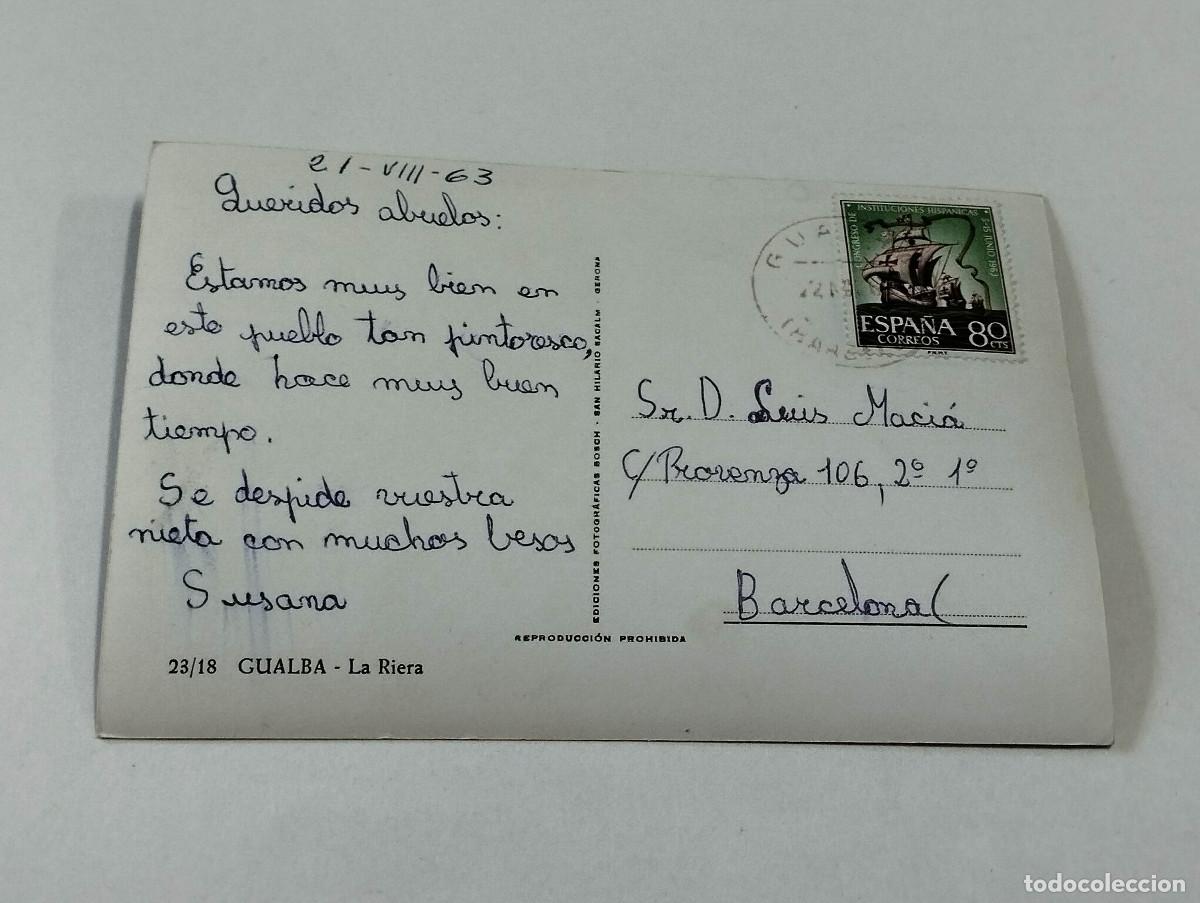 21-VIII-63
Queridos abuelos:
Estamos muy bien en
este pueblo tan pintoresco,
donde hace muy buen
tiempo.
Se despide vuestra
nieta con muchos besos
Susana
23/18 GUALBA - La Riera
EDICIONES FOTOGRÁFICAS BOSCH - SAN HILARIO SACALM - GERONA
REPRODUCCIÓN PROHIBIDA
CONGRESO DE INSTITUCIONES HISPANICAS
ESPAÑA 80 CTS
CORREOS
Sr. D. Luis Maciá
C/ Provenza 106, 2º 1º
Barcelona
todocoleccion